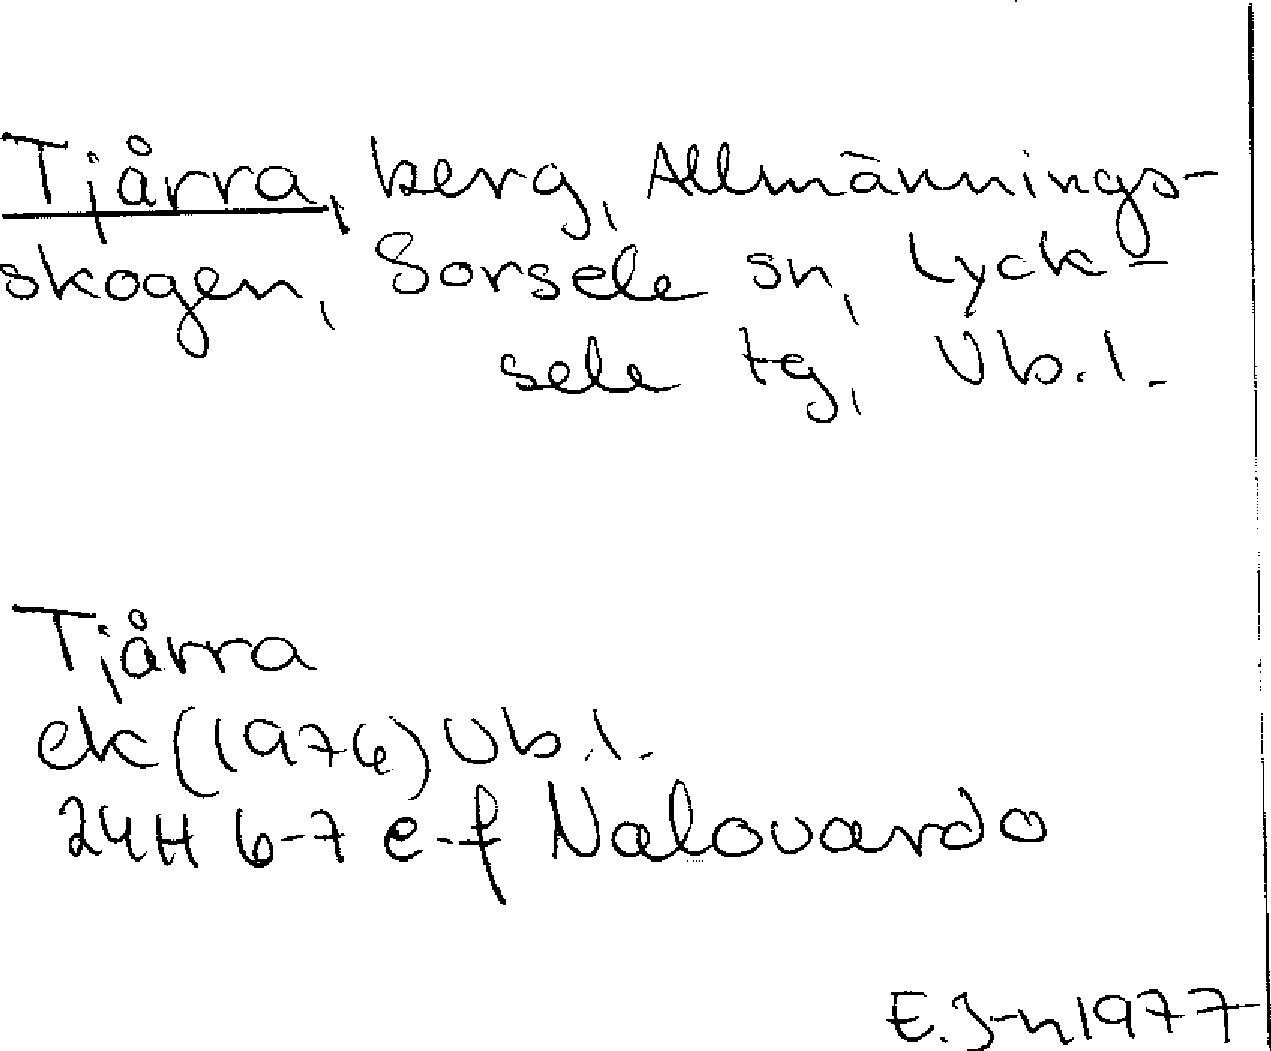 Tjårra, berg, Allmännings-
skogen, Sorsele sn, Lyck-
sele tg, Vb.l.
Tjårra
ek (1976) Vb.l.
24H 6-7 e-f Nalovardo
E.J-n 1977